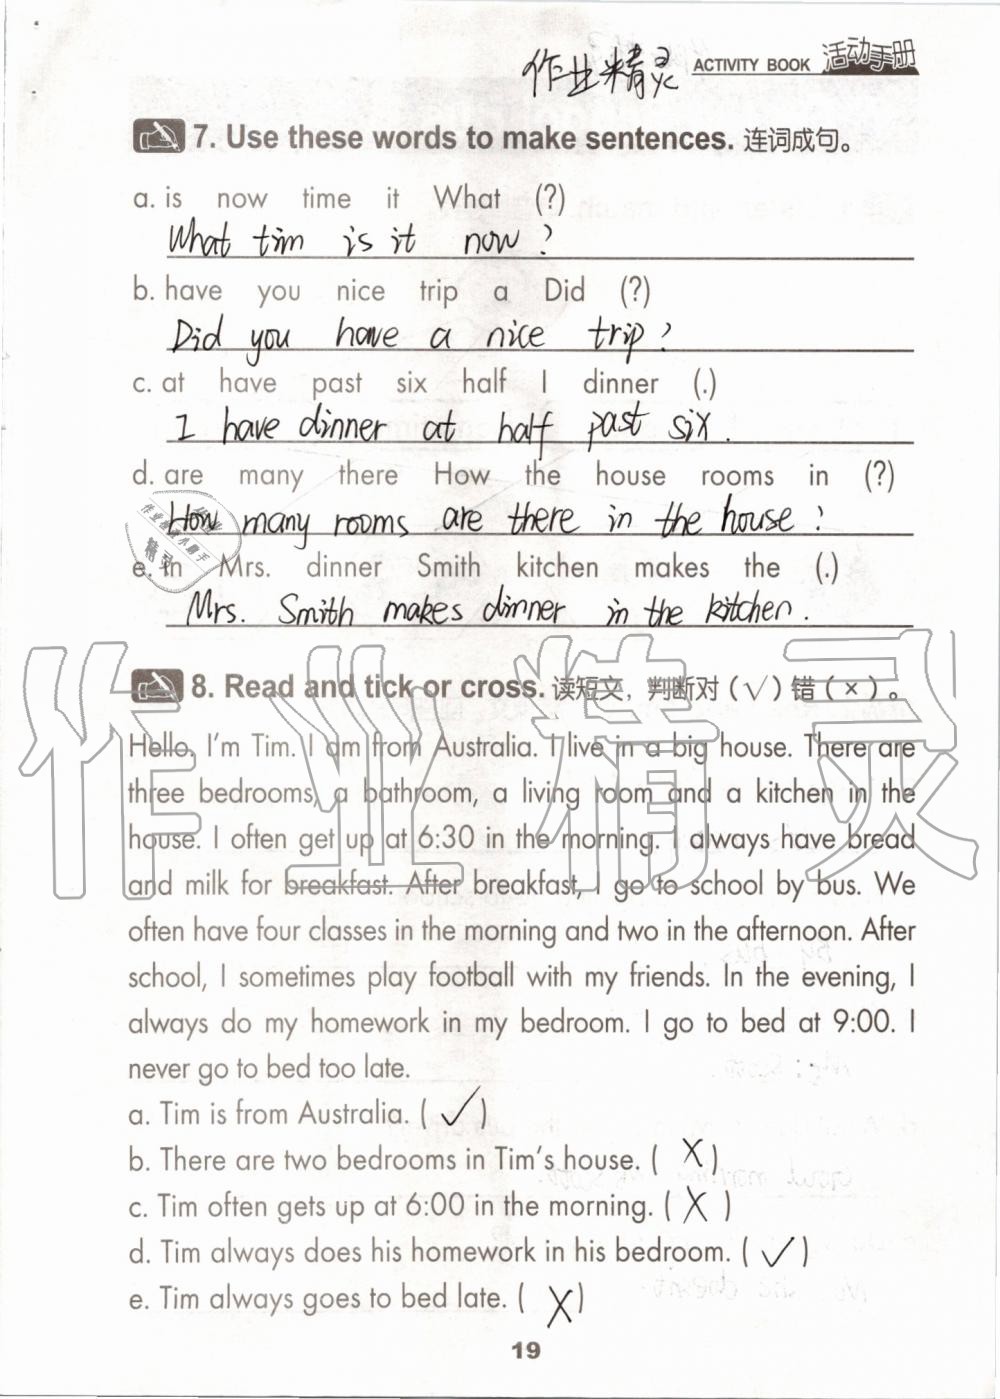 作业精灵 ACTIVITY BOOK 活动手册
7. Use these words to make sentences. 连词成句。
a. is now time it What (?)
What tim is it now?
b. have you nice trip a Did (?)
Did you have a nice trip?
c. at have past six half I dinner (.)
I have dinner at half past six.
d. are many there How the house rooms in (?)
How many rooms are there in the house?
e. in Mrs. dinner Smith kitchen makes the (.)
Mrs. Smith makes dinner in the kitchen.
8. Read and tick or cross. 读短文，判断对（√）错（×）。
Hello, I'm Tim. I am from Australia. I live in a big house. There are
three bedrooms, a bathroom, a living room and a kitchen in the
house. I often get up at 6:30 in the morning. I always have bread
and milk for breakfast. After breakfast, I go to school by bus. We
often have four classes in the morning and two in the afternoon. After
school, I sometimes play football with my friends. In the evening, I
always do my homework in my bedroom. I go to bed at 9:00. I
never go to bed too late.
a. Tim is from Australia. ( ✓ )
b. There are two bedrooms in Tim's house. ( X )
c. Tim often gets up at 6:00 in the morning. ( X )
d. Tim always does his homework in his bedroom. ( ✓ )
e. Tim always goes to bed late. ( X )
19
作业精灵